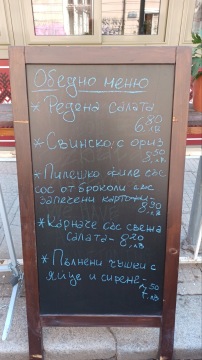 Обедно меню
* Редена салата
6.80
лв
* Свинско с ориз
8.50
лв
* Пилешко филе със
сос от броколи със
запечени картофи-
8.90
лв.
* Карначе със свежа
салата- 8.20
лв
* Пълнени чушки с
яйце и сирене-
7.50
лв.